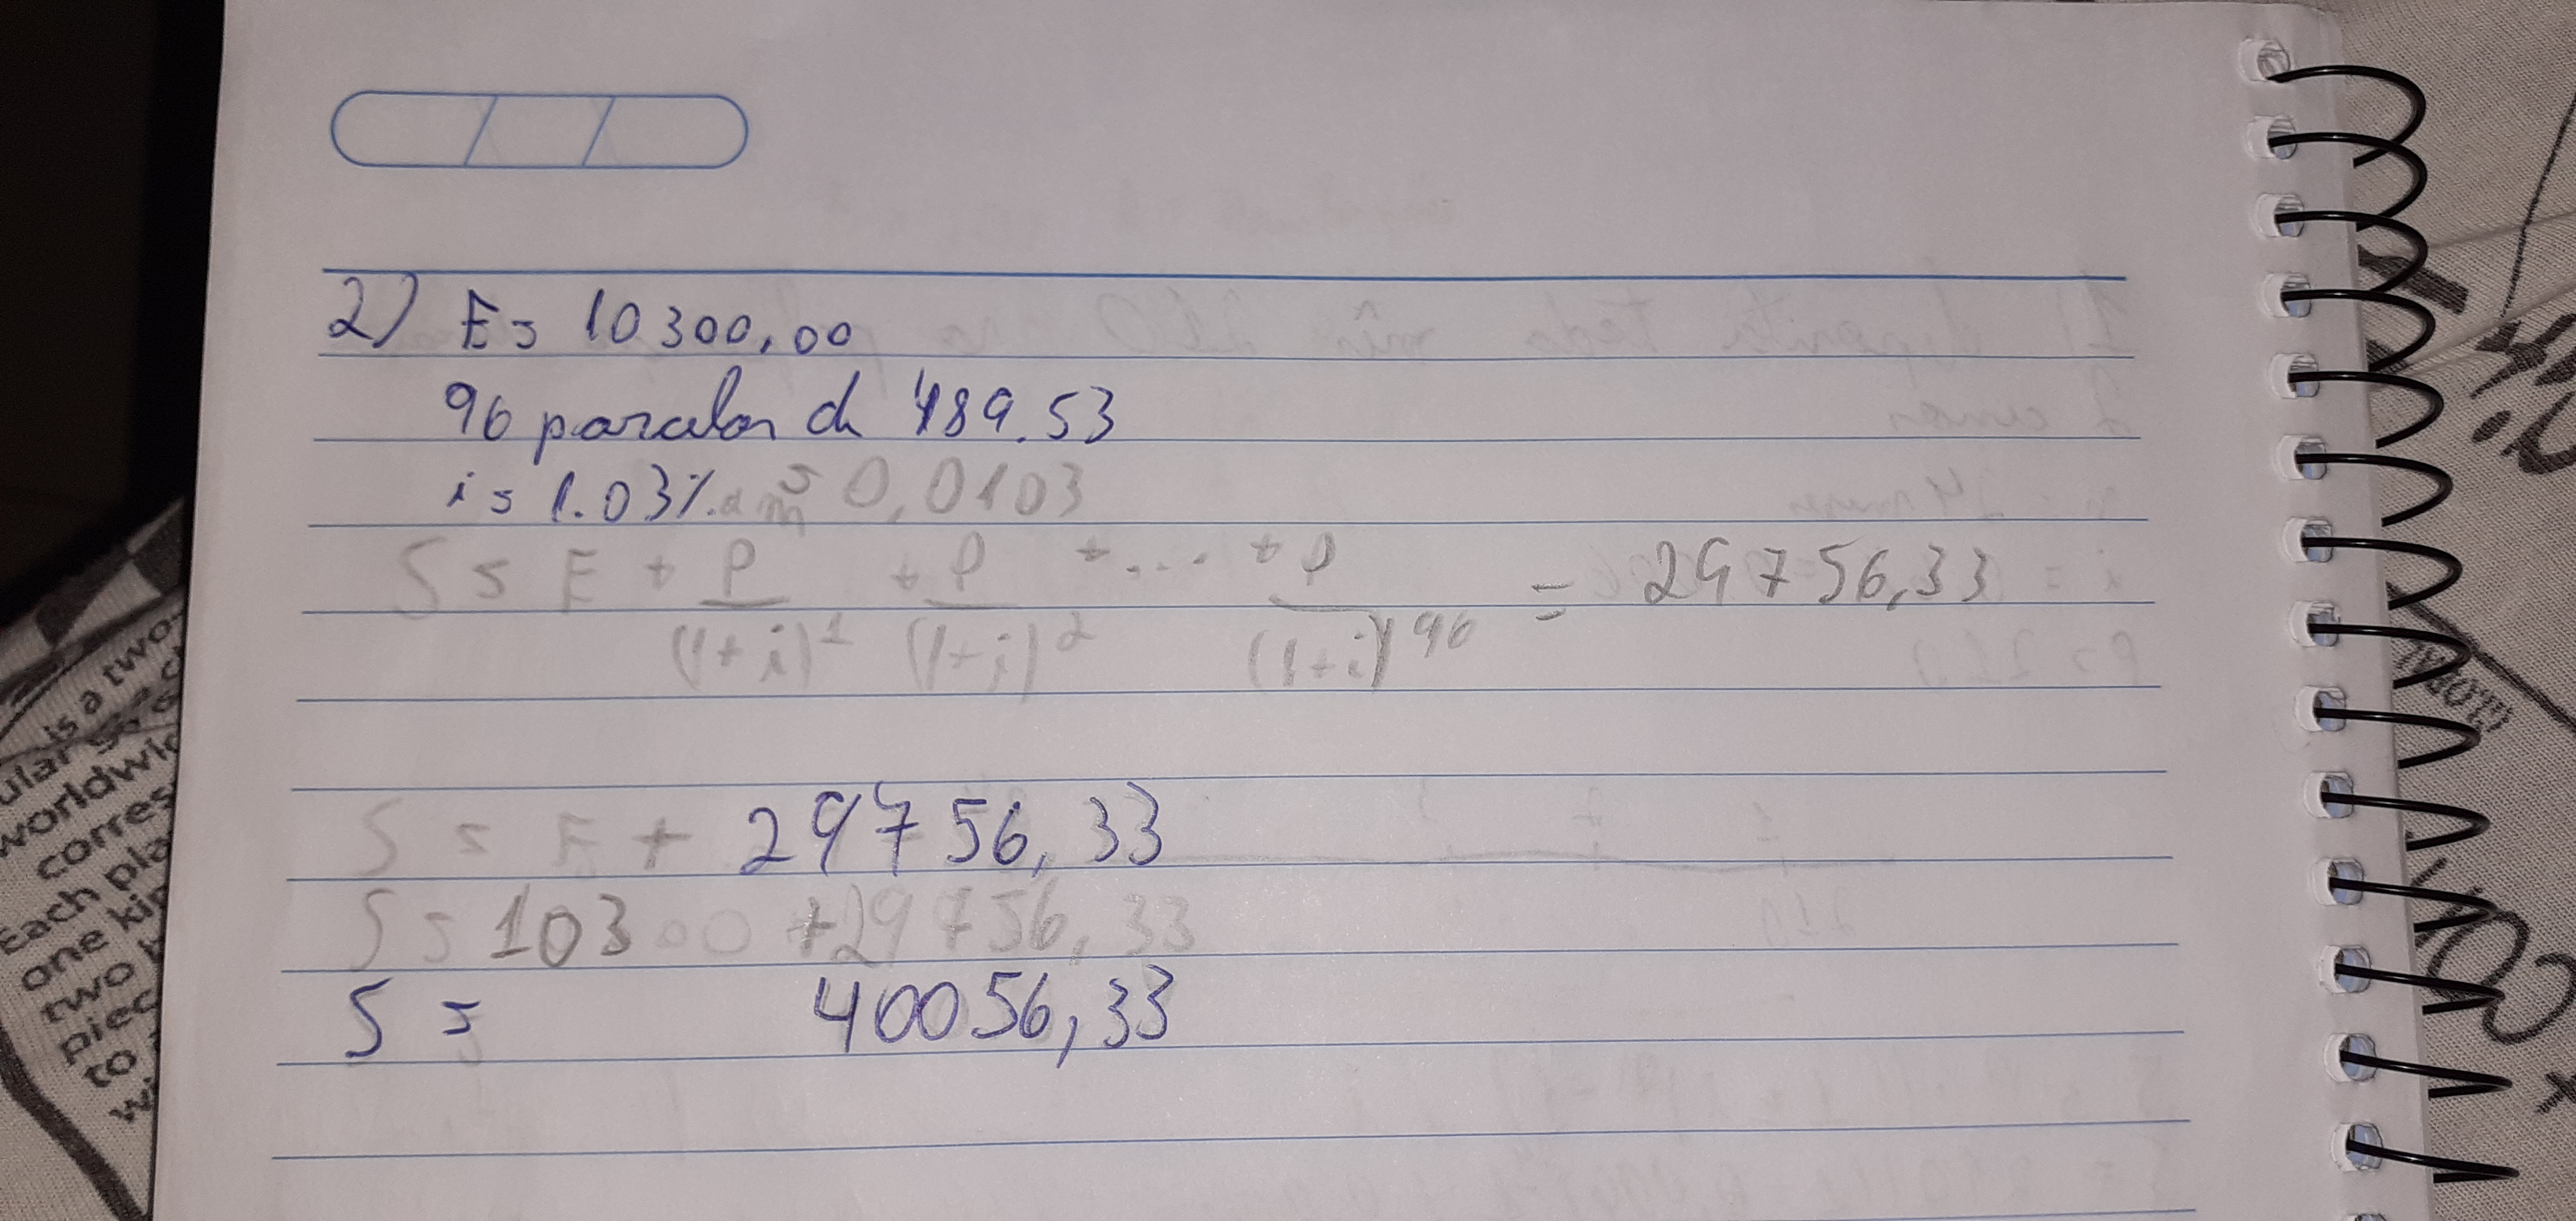 2) E = 10300,00
96 parcelas de 489.53
i = 1.03%. am = 0,0103
S = E + P/(1+i)^1 + P/(1+i)^2 + ... + P/(1+i)^96 = 29756,33
S = E + 29756,33
S = 10300 + 29756,33
S = 40056,33
is a two-
ular
worldwi
corres
Each pla
one ki
two
piec
to